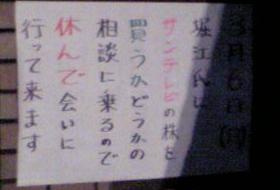 3月6日(月)
堀江氏に
サンテレビの株を
買うかどうかの
相談に乗るので
休んで会いに
行って来ます